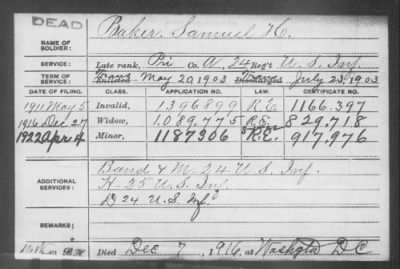 DEAD
NAME OF SOLDIER: Baker, Samuel H.
SERVICE: Late rank, Pri Co. A, 24 Reg't U. S. Inf.
TERM OF SERVICE: Enlisted May 20, 1903 Discharged July 23, 1903
DATE OF FILING. CLASS. APPLICATION NO. LAW. CERTIFICATE NO.
1911 May 5 Invalid, 1396899 R.E. 1166.397
1916 Dec 27 Widow, 1,089,775 R.E. 829,718
1922 Apr 4 Minor, 1187306 R.E. 917,976
ADDITIONAL SERVICES:
Band & M. 24 U. S. Inf.
H-25 U. S. Inf.
D 24 U. S. Inf
REMARKS:
Died Dec 7, 1916, at Washgtn D C